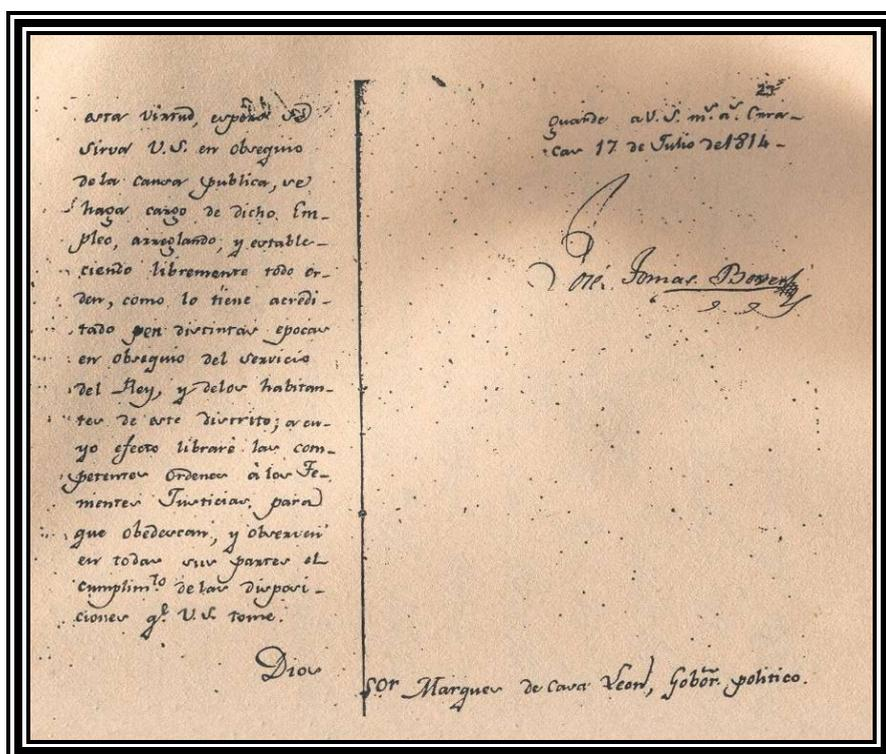 esta virtud, espero se
sirva U.S. en obsequio
de la causa publica, se
haga cargo de dicho Em-
pleo, arreglando, y estable-
ciendo libremente todo or-
den, como lo tiene acredi-
tado en distintas epocas
en obsequio del servicio
del Rey, y delos habitan-
tes de este distrito; a cu-
yo efecto libraré las com-
petentes Ordenes à los Te-
nientes Justicias, para
que obedescan, y observen
en todas sus partes el
cumplim.to de las disposi-
ciones q.e U.S. tome.
Dios
23
Guarde a U.S. m.s a.s Cara-
cas 17 de Julio de 1814-
José Tomas Boves
Sor Marques de Casa Leon, Gobór. politico.